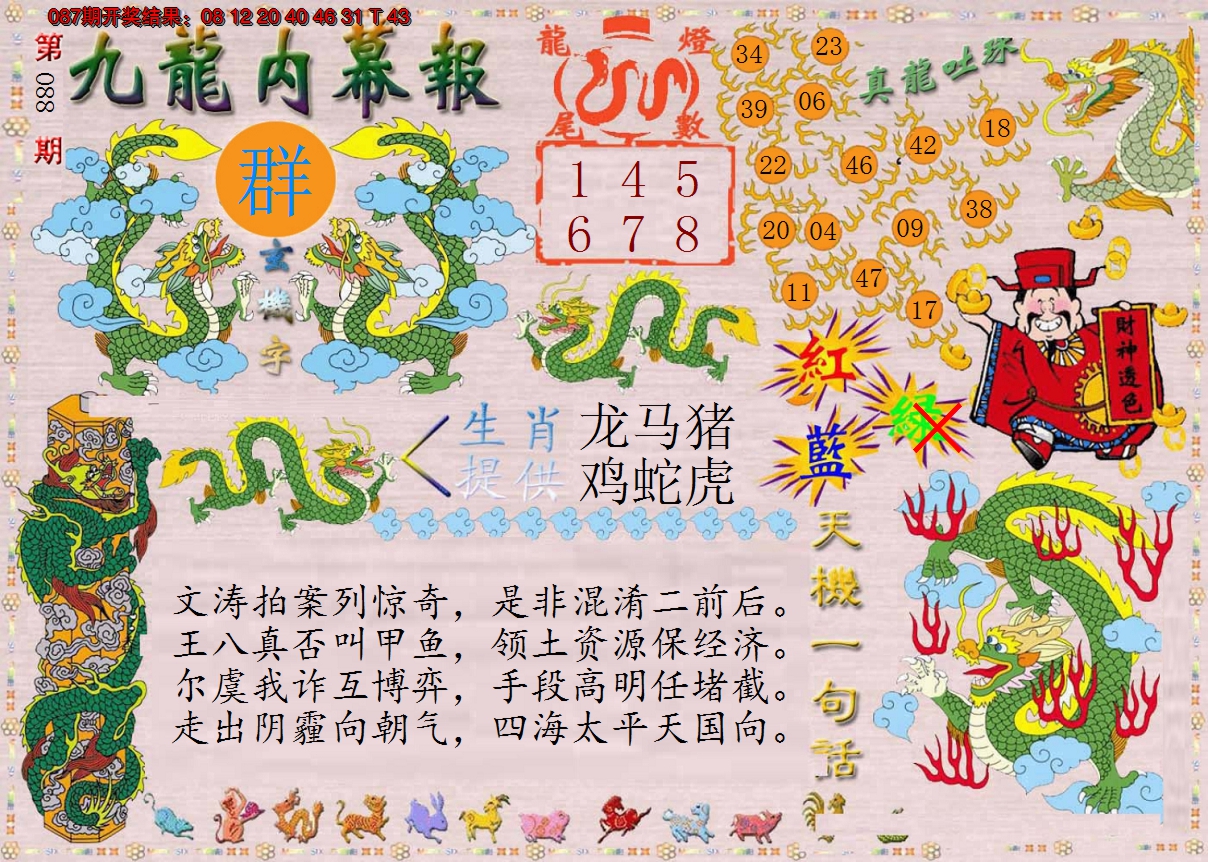 087期开奖结果：06 12 20 40 46 31 T 43
第088期
九龍内幕報
群
玄機字
龍燈尾數
1 4 5
6 7 8
真龍吐珠
34 23
39 06
42 18
22 46
38
20 04 09
47
11
17
財神透色
紅
綠
藍
生肖 龙马猪
提供 鸡蛇虎
天機一句话
文涛拍案列惊奇，是非混淆二前后。
王八真否叫甲鱼，领土资源保经济。
尔虞我诈互博弈，手段高明任堵截。
走出阴霾向朝气，四海太平天国向。